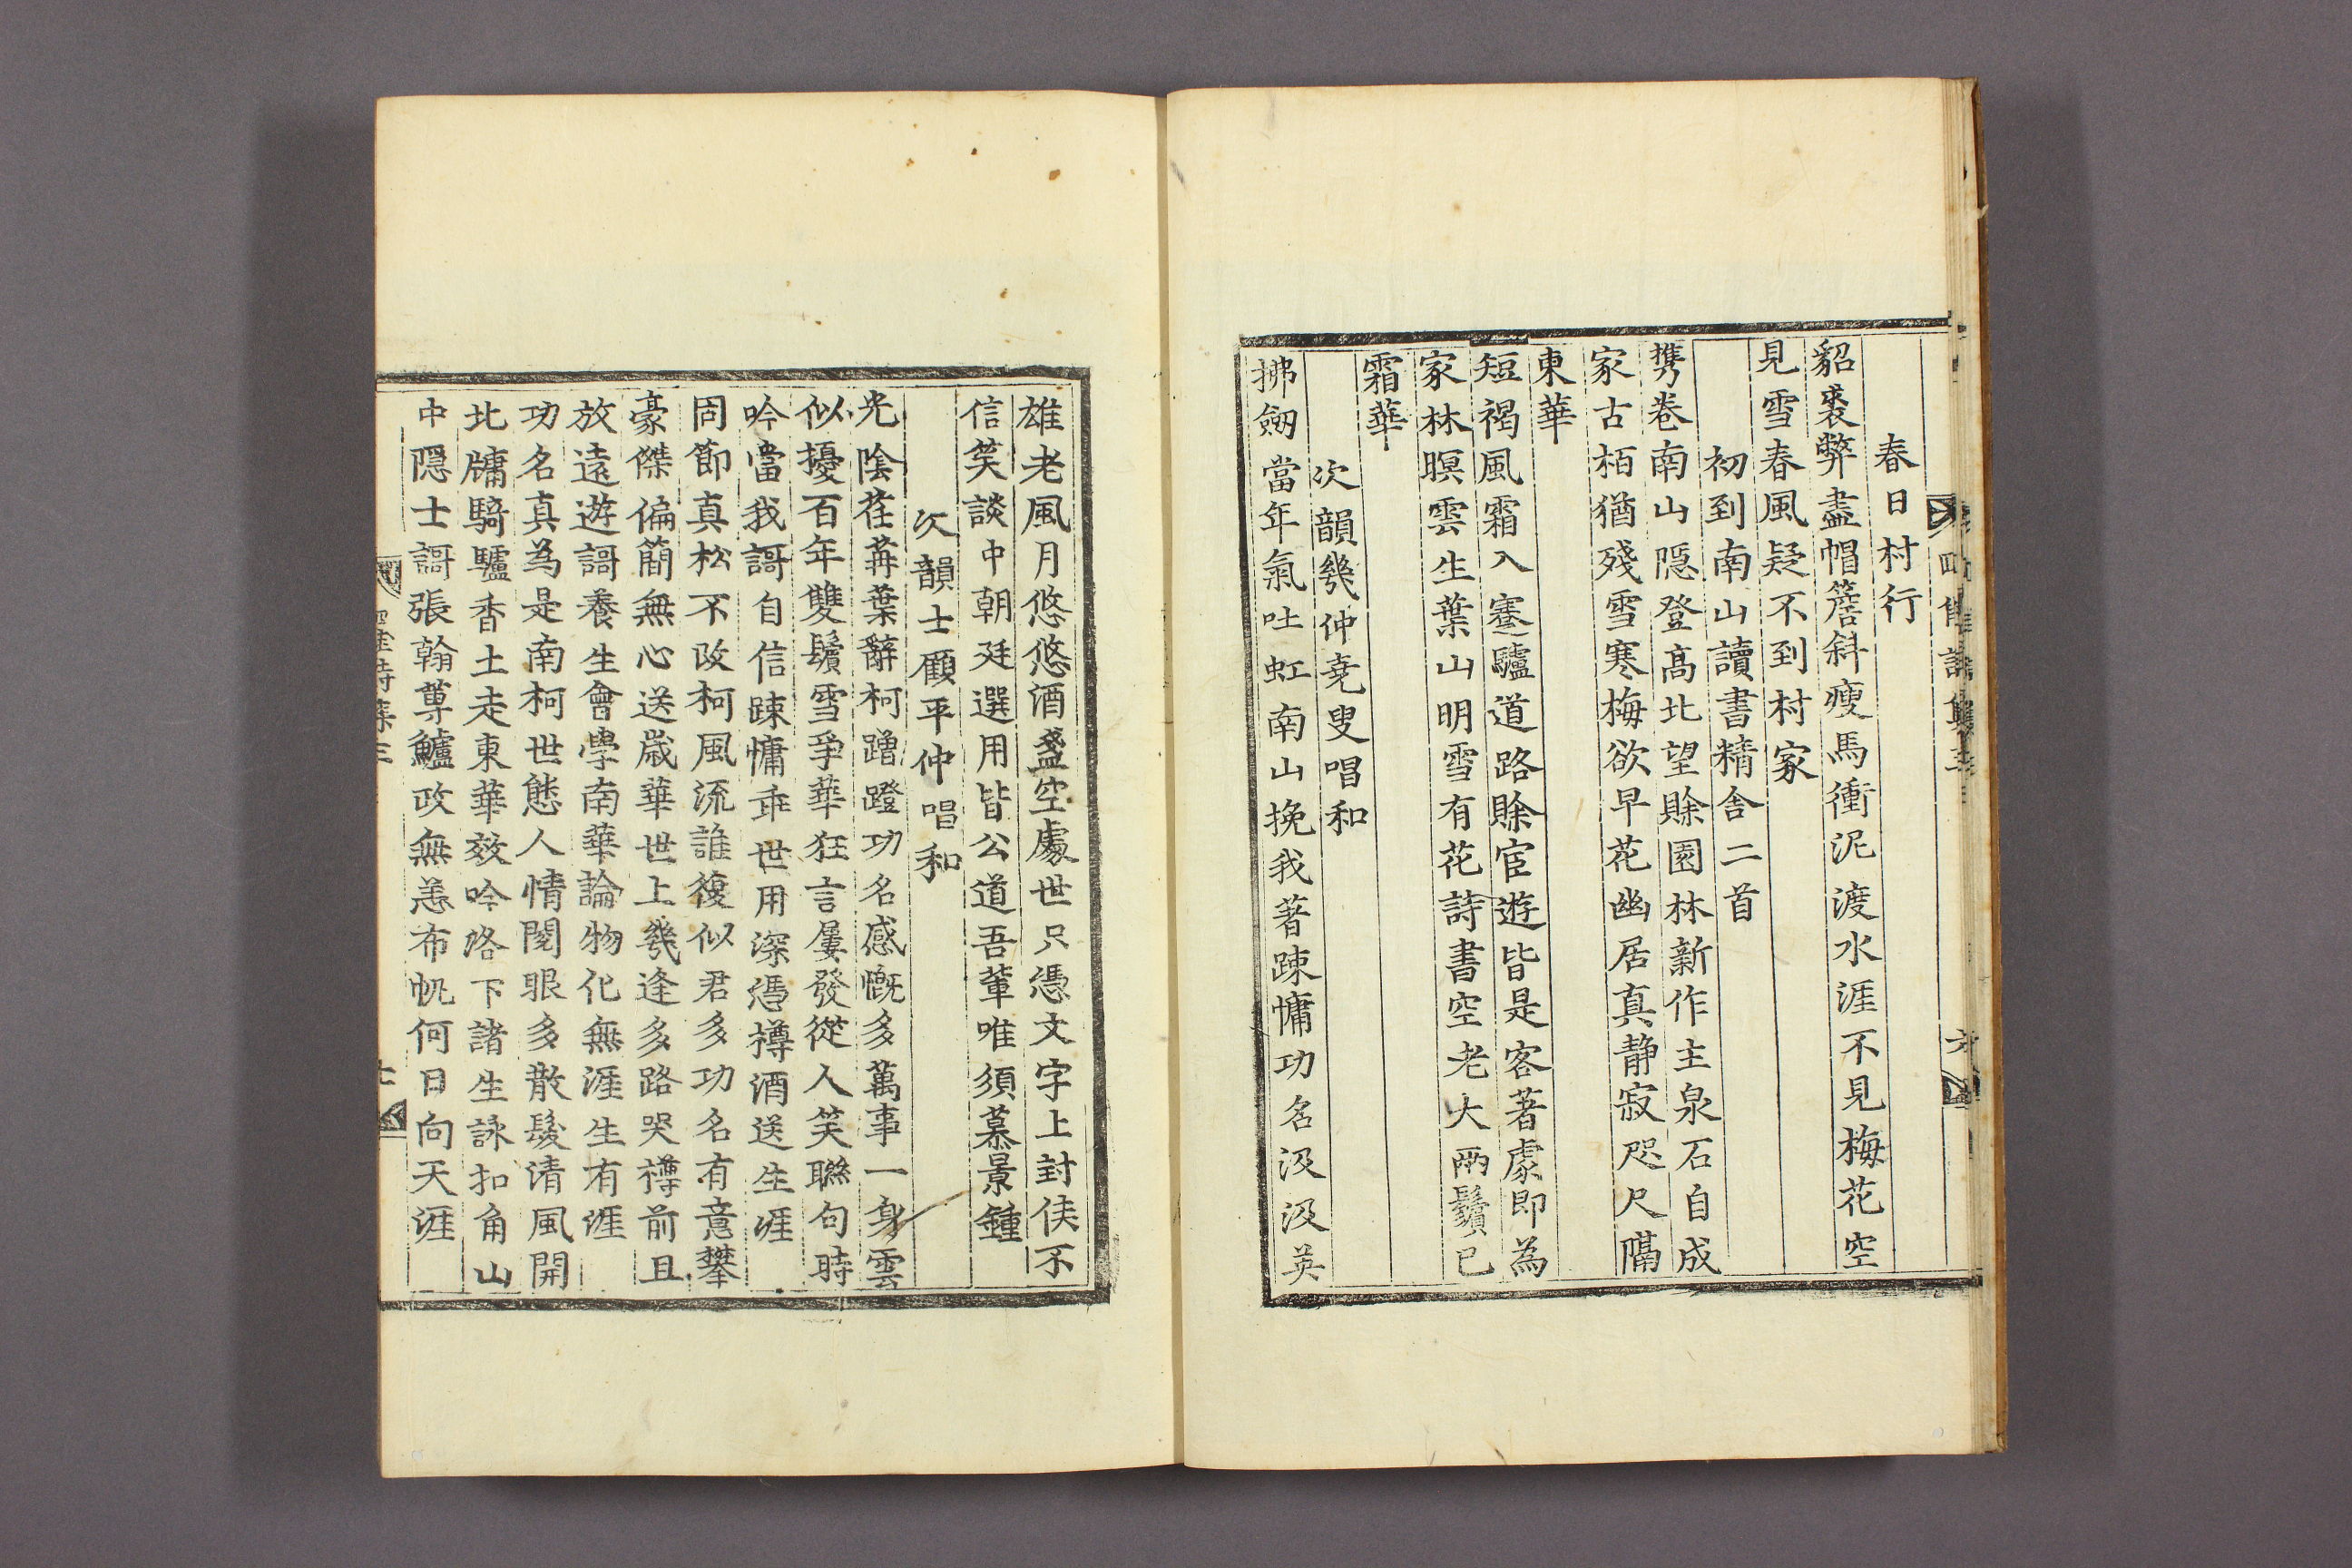 春日村行
貂裘弊盡帽簷斜瘦馬衝泥渡水涯不見梅花空
見雪春風疑不到村家
初到南山讀書精舍二首
携卷南山隱登髙北望賖園林新作主泉石自成
家古栢猶殘雪寒梅欲早花幽居真静寂咫尺隔
東華
短褐風霜入蹇驢道路賖宦遊皆是客著處即為
家林暝雲生葉山明雪有花詩書空老大兩鬢已
霜華
次韻幾仲尭叟唱和
拂劒當年氣吐虹南山挽我著踈慵功名汲汲英
雄老風月悠悠酒盞空處世只憑文字上封侯不
信笑談中朝廷選用皆公道吾輩唯須慕景鍾
次韻士顧平仲唱和
光陰荏苒葉辭柯蹭蹬功名感慨多萬事一身雲
似擾百年雙鬢雪爭華狂言屢發從人笑聯句時
吟當我謌自信踈慵乖世用深憑樽酒送生涯
固節真松不改柯風流誰復似君多功名有意攀
豪傑偏簡無心送歲華世上幾逢多路哭樽前且
放遠遊謌養生會學南華論物化無涯生有涯
功名真為是南柯世態人情閱眼多散髮清風開
北牖騎驢香土走東華效吟洛下諸生詠扣角山
中隱士謌張翰蓴鱸政無恙布帆何日向天涯